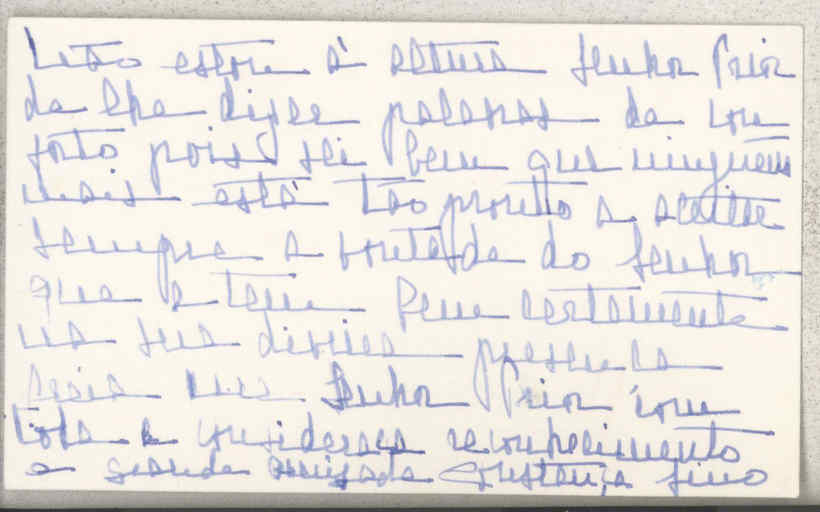 Não estou à altura Senhor Prior
de lhe dizer palavras de con
forto pois sei bem que ninguém
mais está tão pronto a aceitar
sempre a vontade do Senhor
que a tem bem certamente
na sua divina presença
Senhor Prior com
toda a consideração reconhecimento
e grande amizade Constança